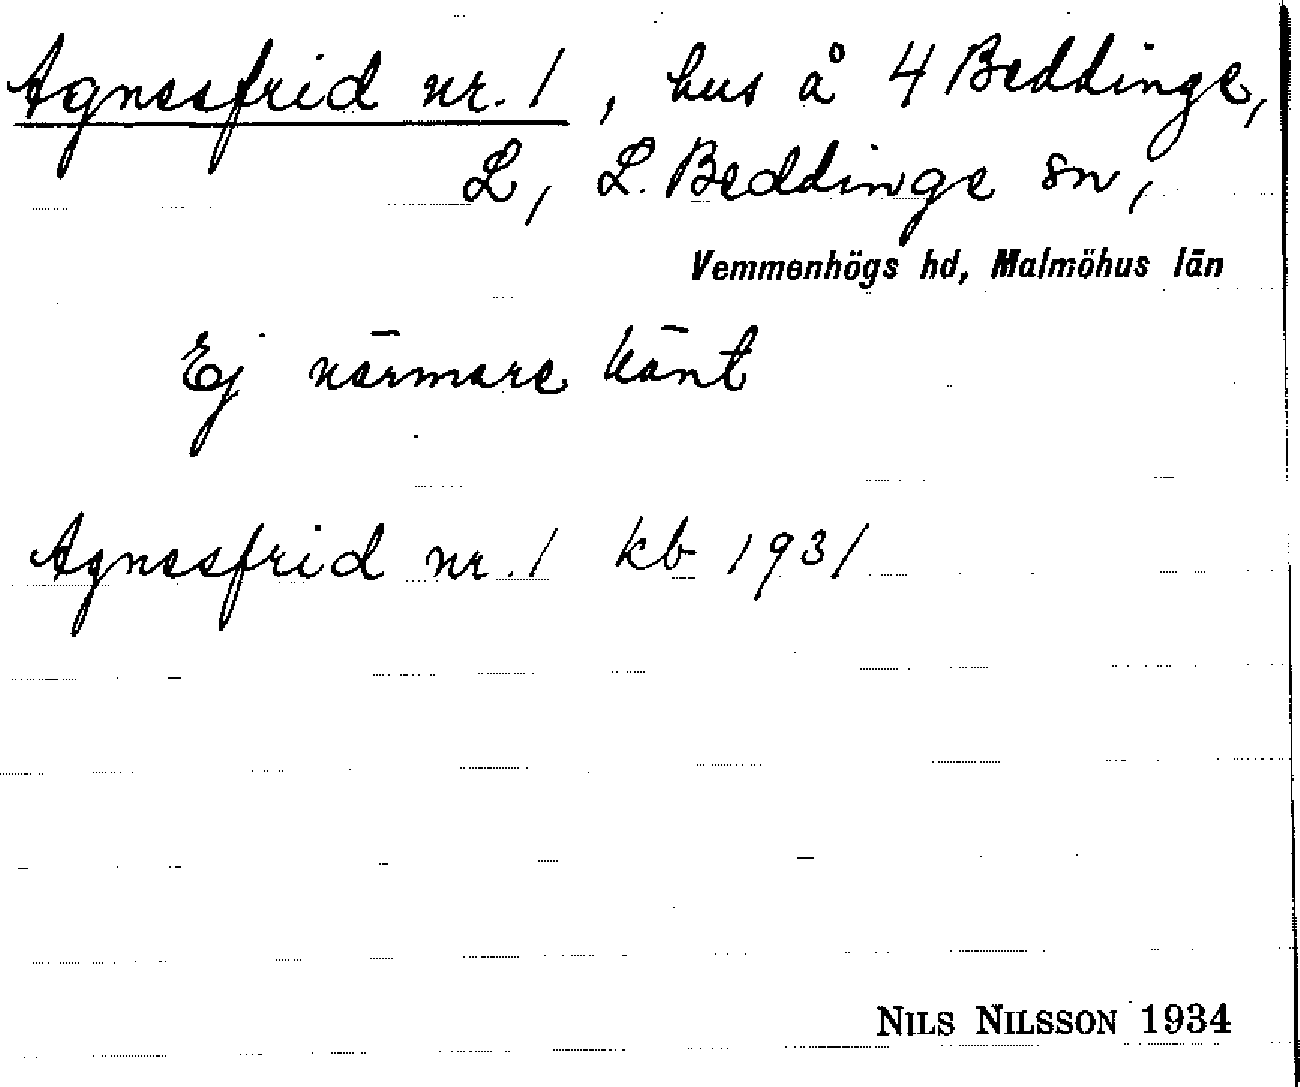 Agnesfrid nr. 1, hus å 4 Beddinge,
L, L. Beddinge sn,
Vemmenhögs hd, Malmöhus län
Ej närmare känt
Agnesfrid nr. 1 kb 1931
NILS NILSSON 1934